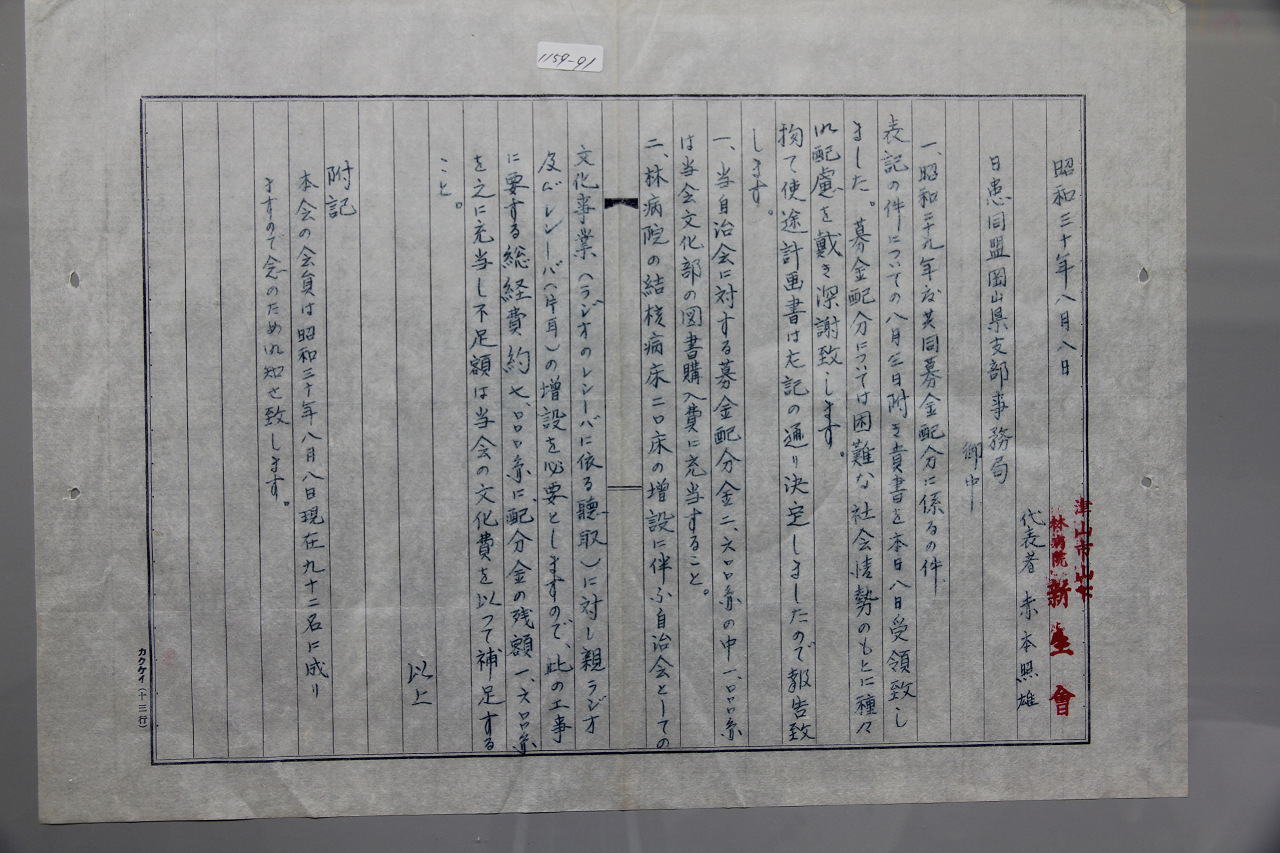 1159-91
昭和三十年八月八日
津山市山下
林病院 新生會
代表者 赤本照雄
日患同盟岡山県支部事務局
御中
一、昭和二十九年度共同募金配分に係るの件
表記の件についての八月三日附き貴書を本日八日受領致し
ました。募金配分については困難な社会情勢のもとに種々
御配慮を戴き深謝致します。
拘て使途計画書は左記の通り決定しましたので報告致
します。
一、当自治会に対する募金配分金二、六〇〇円の中一、〇〇〇円
は当会文化部の図書購入費に充当すること。
二、林病院の結核病床二〇床の増設に伴ふ自治会としての
文化事業(ラジオのレシーバに依る聴取)に対し親ラジオ
及びレシーバ(片耳)の増設を必要としますので、此の工事
に要する総経費約七、〇〇〇円に配分金の残額一、六〇〇円
を之に充当し不足額は当会の文化費を以つて補足する
こと。
以上
附記
本会の会員は昭和三十年八月八日現在九十二名に成り
ますので念のため御知せ致します。
カクケイ(十三行)